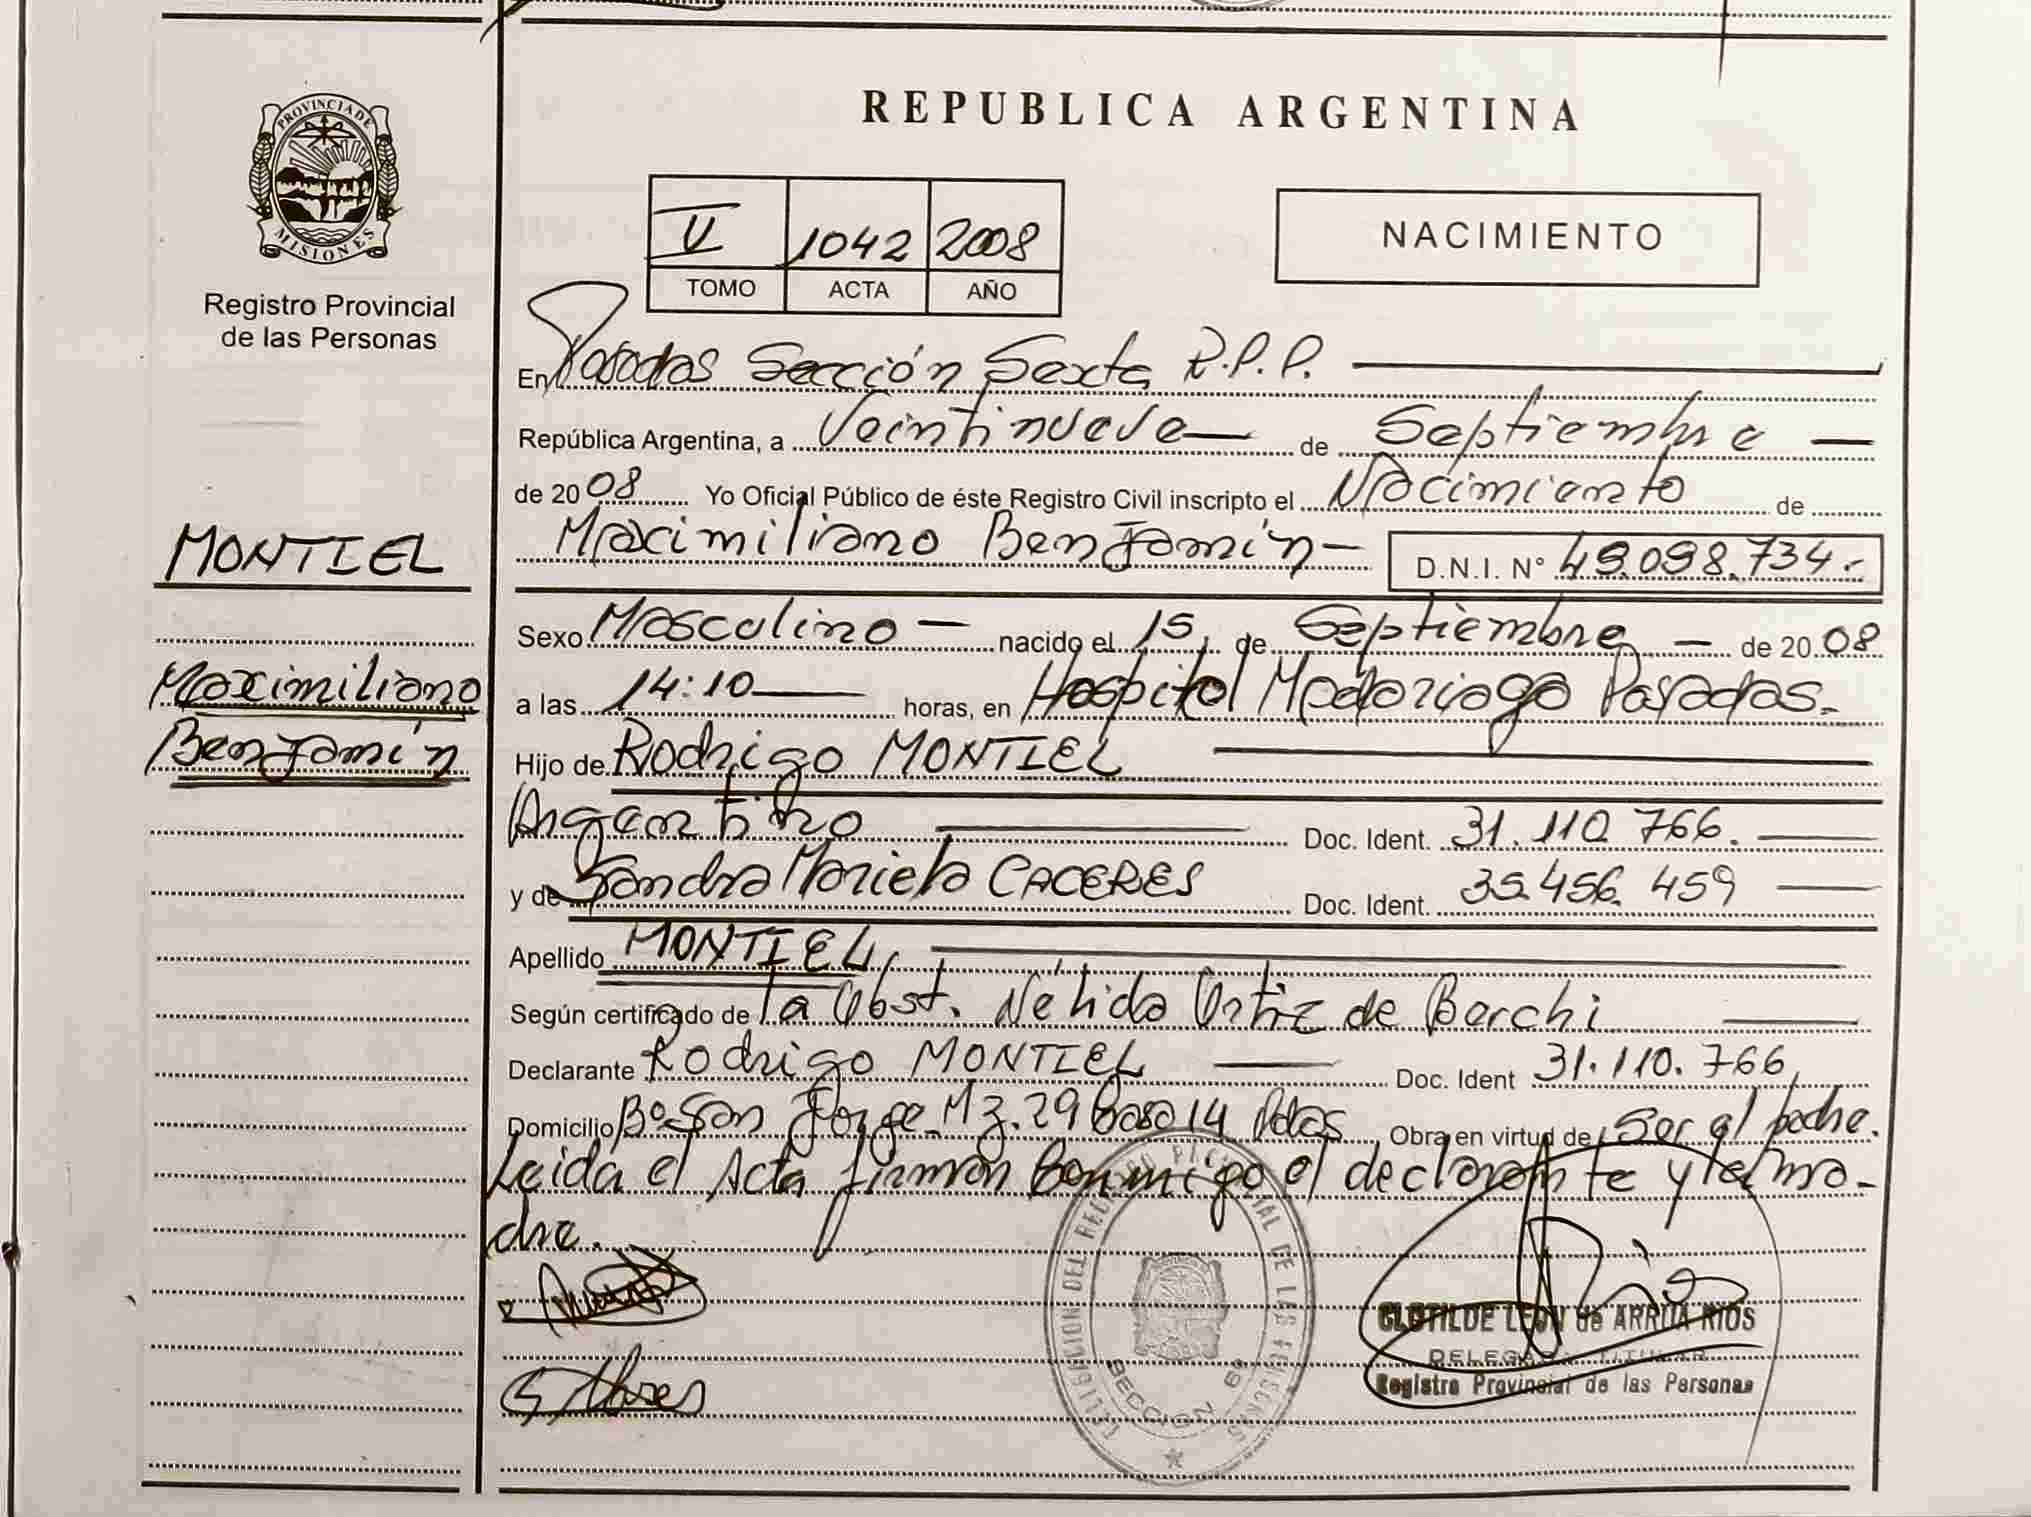 PROVINCIA DE
MISIONES
Registro Provincial
de las Personas
MONTIEL
Maximiliano
Benjamín
REPUBLICA ARGENTINA
V 1042 2008
TOMO ACTA AÑO
NACIMIENTO
En Posadas Sección Sexta R.P.P.
República Argentina, a Veintinueve de Septiembre
de 2008 Yo Oficial Público de éste Registro Civil inscripto el Nacimiento de
Maximiliano Benjamín D.N.I. N° 49.098.734.-
Sexo Masculino nacido el 15 de Septiembre de 2008
a las 14:10 horas, en Hospital Madariaga Posadas.
Hijo de Rodrigo MONTIEL
Argentino Doc. Ident. 31.110.766.
y de Sandra Mariela CACERES Doc. Ident. 35.456.459
Apellido MONTIEL
Según certificado de la Obst. Nélida Ortiz de Barchi
Declarante Rodrigo MONTIEL Doc. Ident 31.110.766
Domicilio B° San Jorge Mz. 29 Casa 14 Pdas Obra en virtud de Ser el padre.
Leida el Acta firman Conmigo el declarante y la ma-
dre.
SECCION 6a
CLOTILDE LEON de ARRUA RIOS
DELEGADA TITULAR
Registro Provincial de las Personas